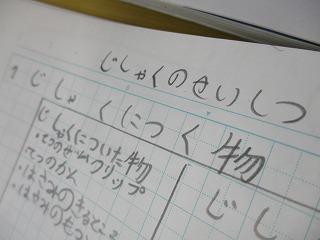 じしゃくのせいしつ
1 じしゃくにつく物
じしゃくについた物
・てつのぜムクリップ
てつのかん
・はさみのきるところ
・はさみのもつ
じし